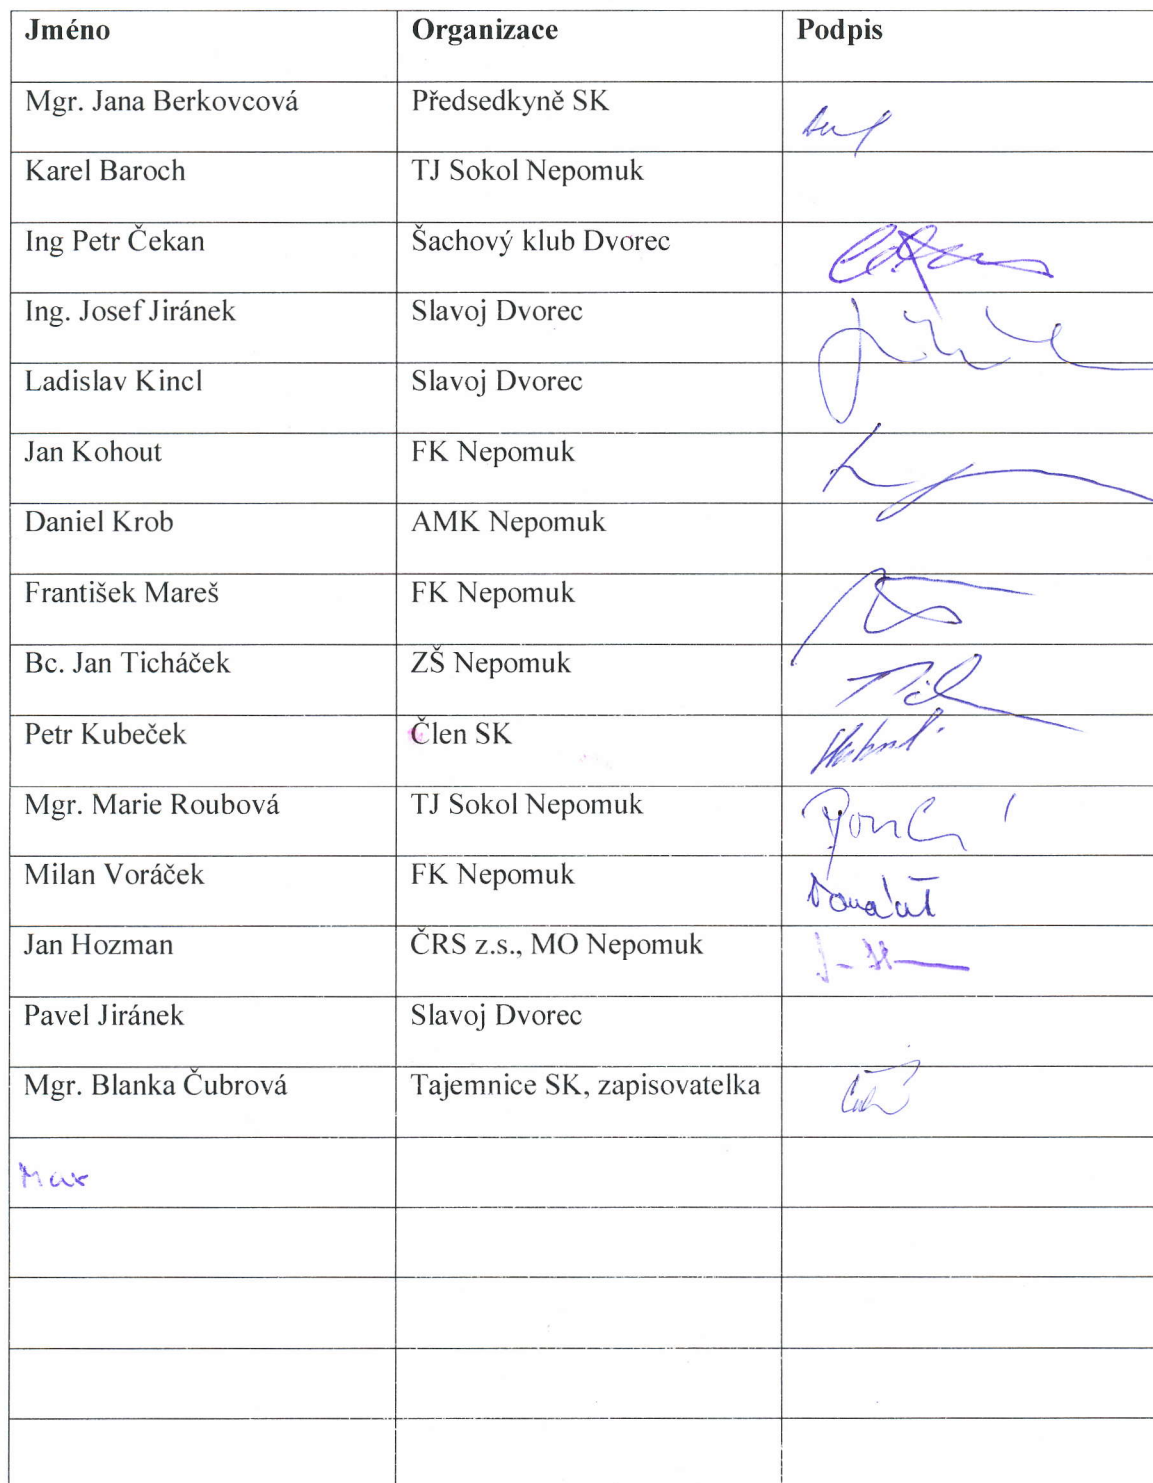 Jméno Organizace Podpis
Mgr. Jana Berkovcová Předsedkyně SK
Karel Baroch TJ Sokol Nepomuk
Ing Petr Čekan Šachový klub Dvorec
Ing. Josef Jiránek Slavoj Dvorec
Ladislav Kincl Slavoj Dvorec
Jan Kohout FK Nepomuk
Daniel Krob AMK Nepomuk
František Mareš FK Nepomuk
Bc. Jan Ticháček ZŠ Nepomuk
Petr Kubeček Člen SK
Mgr. Marie Roubová TJ Sokol Nepomuk
Milan Voráček FK Nepomuk
Jan Hozman ČRS z.s., MO Nepomuk
Pavel Jiránek Slavoj Dvorec
Mgr. Blanka Čubrová Tajemnice SK, zapisovatelka